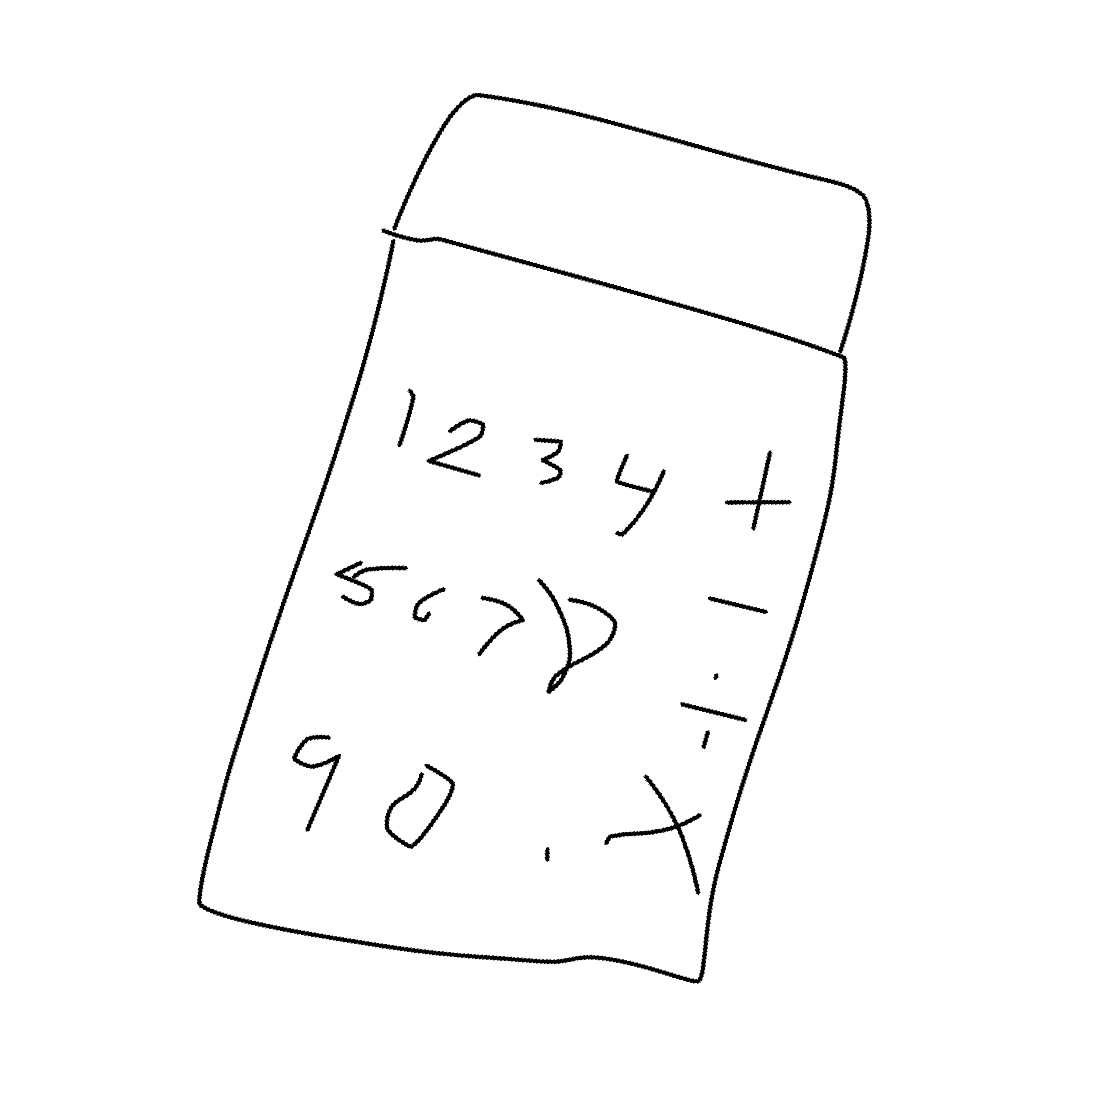 1 2 3 4 +
5 6 7 8 -
÷
9 0 . ×